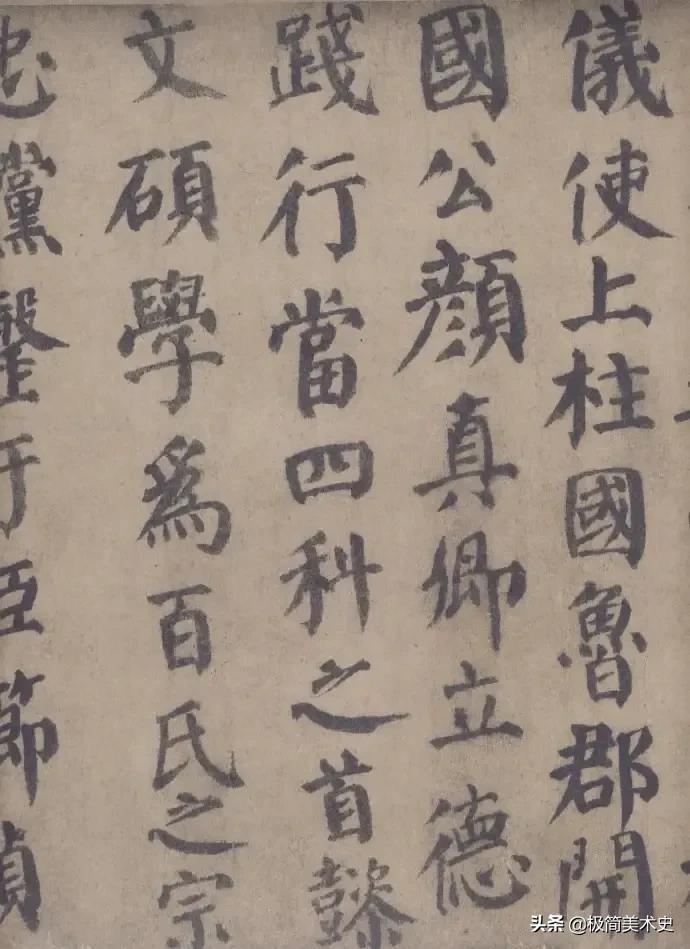 儀使上柱國魯郡開
國公顔真卿立德
踐行當四科之首懿
文碩學爲百氏之宗
忠讜罄于臣節貞
头条 @极简美术史